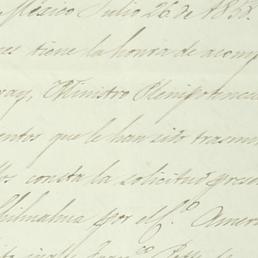 Mexico Julio 26 de 1855.
tiene la honra de acomp
Ministro Plenipotencia
entos que le han sido trasmi
los consta la solicitud prese
Chihuahua por el C.º Ameri